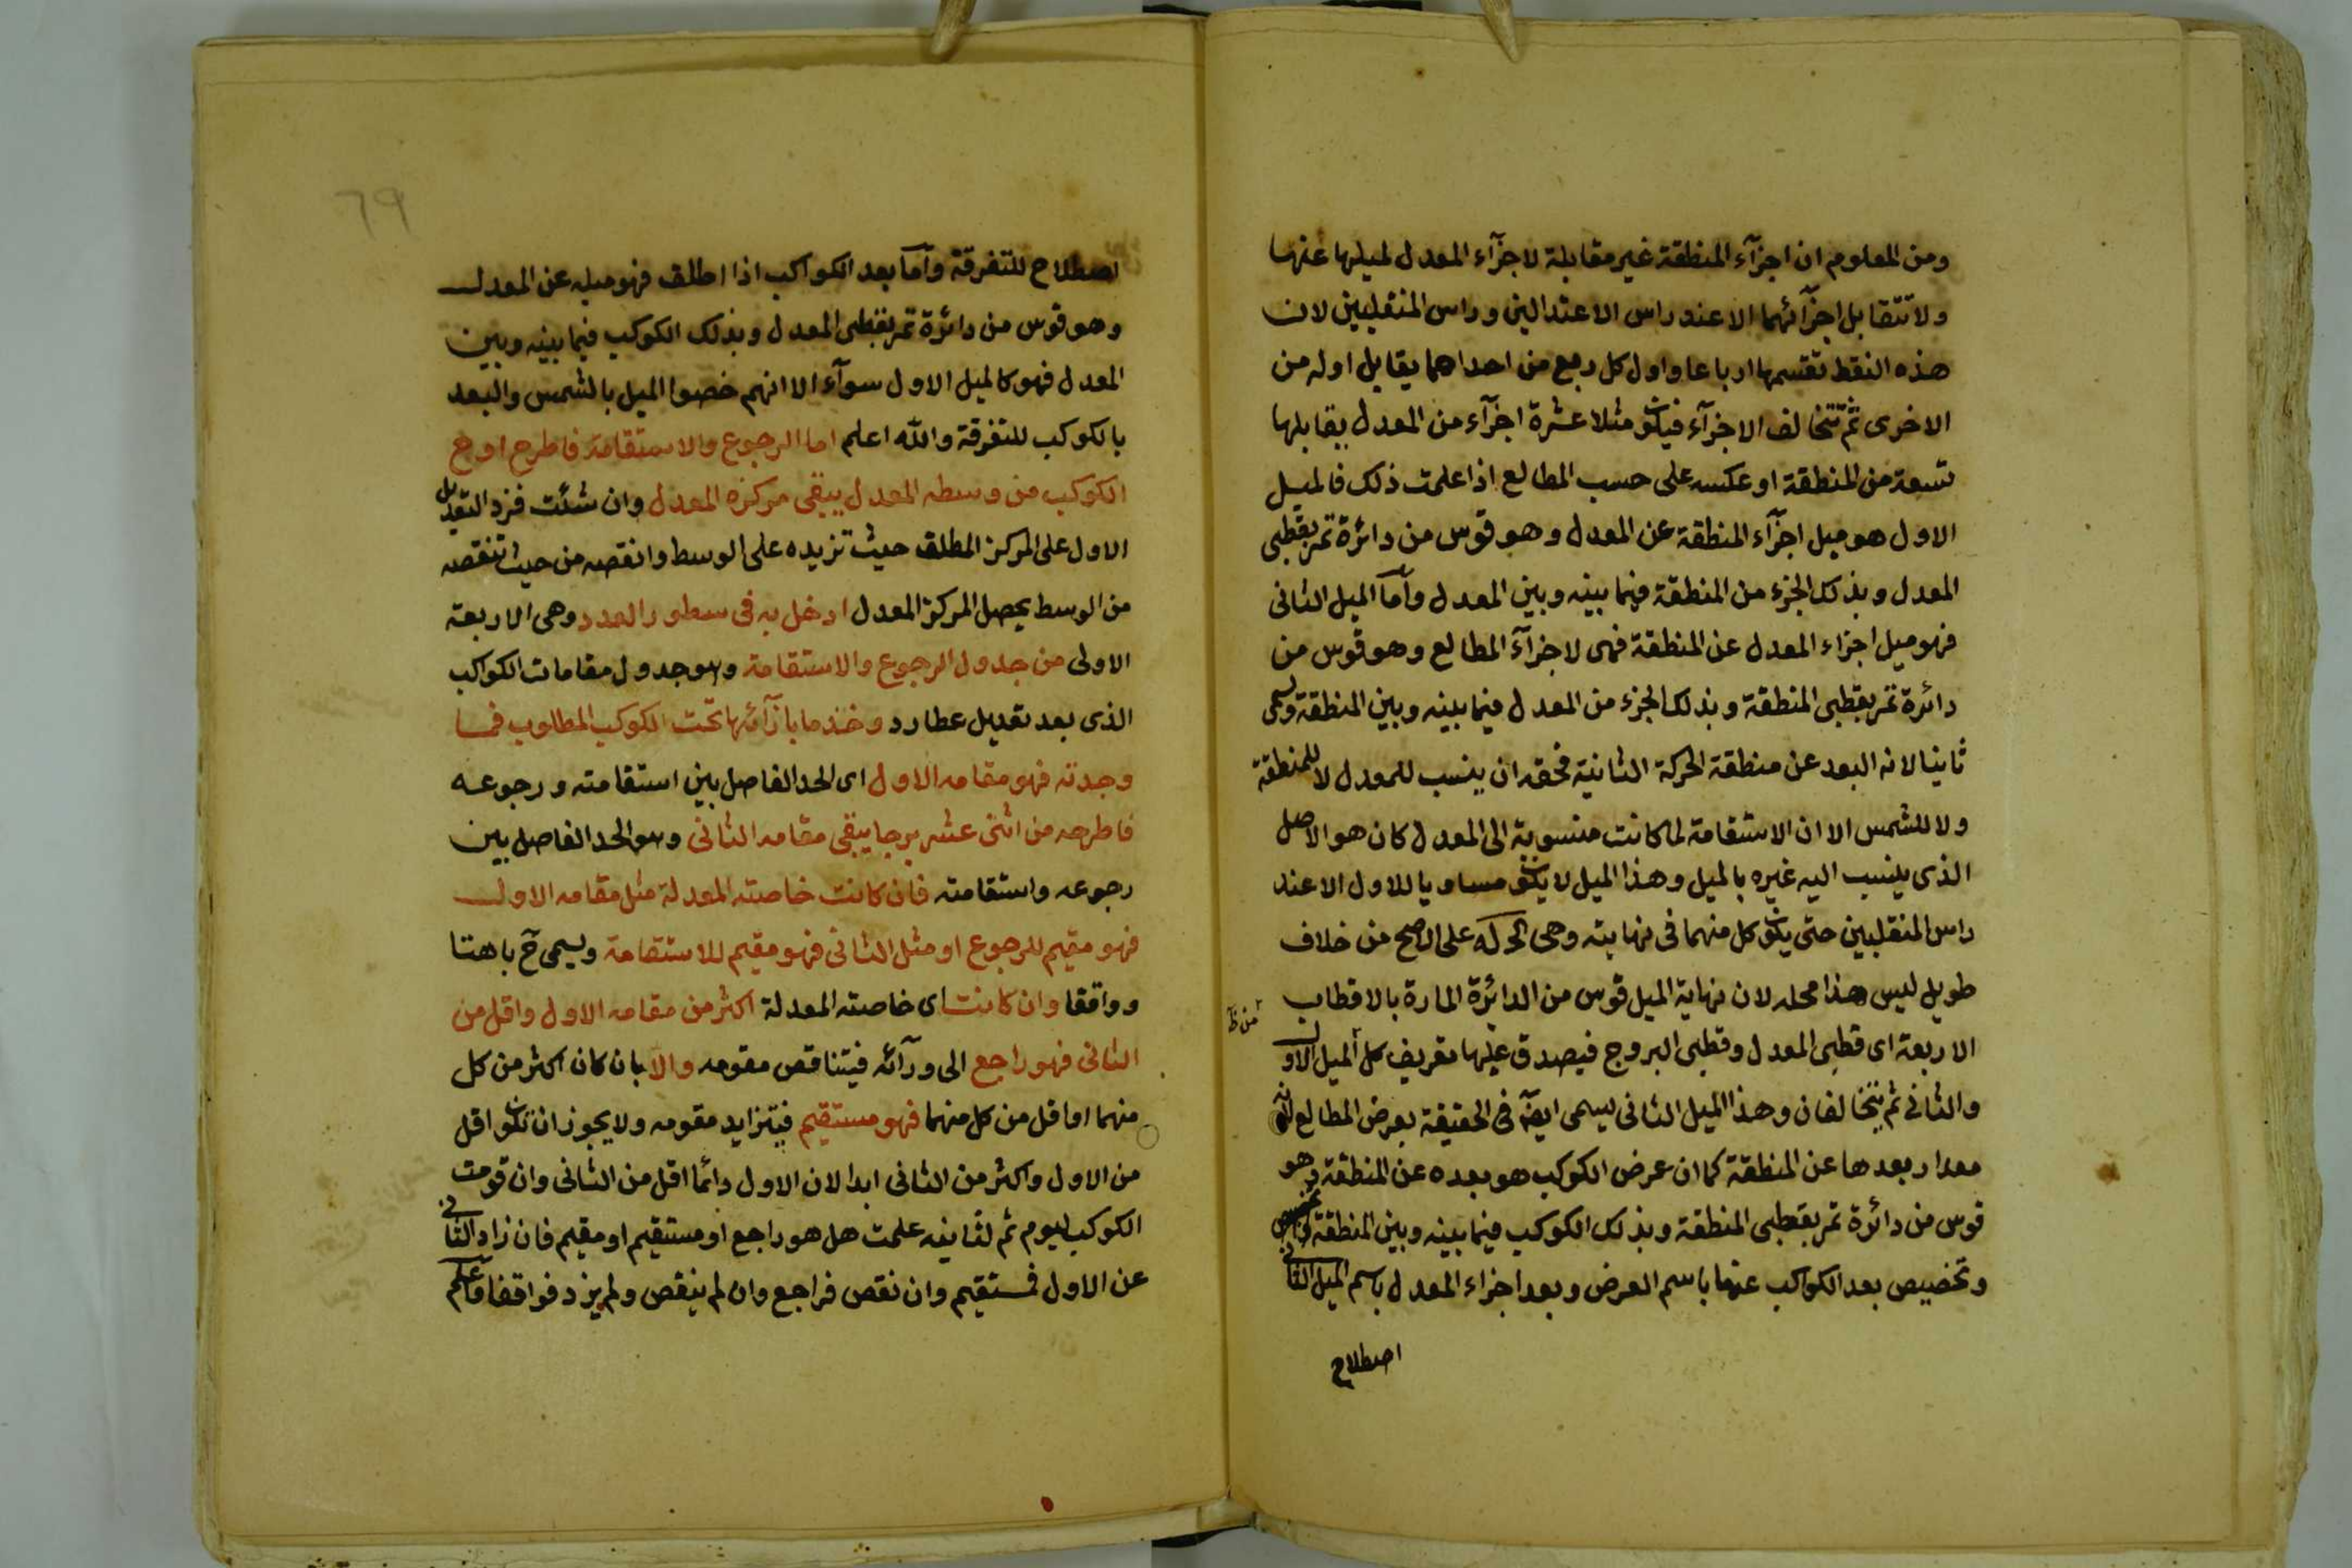 ومن المعلوم ان اجزآء المنطقة غير مقابلة لاجزآء المعدل لميلها عنها
ولا تتقابل اجزآئهما الا عند راس الاعتدالين وراس المنقلبين لان
هذه النقط تقسمها ارباعا واول كل ربع من احداهما يقابل اوله من
الاخرى ثم تتخالف الاجزآء فيكون مثلا عشرة اجزآء من المعدل يقابلها
تسعة من المنطقة او عكسه على حسب المطالع اذا علمت ذلك فالميل
الاول هو ميل اجزآء المنطقة عن المعدل وهو قوس من دائرة تمر بقطبى
المعدل وبذلك الجزء من المنطقة فيما بينه وبين المعدل وآما الميل الثانى
فهو ميل اجزاء المعدل عن المنطقة فهى لاجزآء المطالع وهو قوس من
دائرة تمر بقطبى المنطقة وبذلك الجزء من المعدل فيما بينه وبين المنطقة وسمى
ثانيا لانه البعد عن منطقة الحركة الثانية فحقه ان ينسب للمعدل لا للمنطقة
ولا للشمس الا ان الاستقامة لما كانت منسوبة الى المعدل كان هو الاصل
الذى ينسب اليه غيره بالميل وهذا الميل لا يكون مساويا للاول الا عند
راس المنقلبين حتى يكون كل منهما فى نهايته وهى الحركه على الاصح من خلاف
طويل ليس هذا محله لان نهاية الميل قوس من الدائرة المارة بالاقطاب
من ظ
الاربعة اى قطبى المعدل وقطبى البروج فيصدق عليها تعريف كل الميل الاول
والثانى ثم يتخالفان وهذا الميل الثانى يسمى ايضا فى الحقيقة بعرض المطالع لانه
مقدار بعدها عن المنطقة كما ان عرض الكوكب هو بعده عن المنطقة وهو
قوس من دائرة تمر بقطبى المنطقة وبذلك الكوكب فيما بينه وبين المنطقة
وتخصيص بعد الكواكب عنها باسم العرض وبعد اجزاء المعدل باسم الميل الثانى
اصطلاح
٦٩
اصطلاح للتفرقة وآما بعد الكواكب اذا اطلق فهو ميله عن المعدل
وهو قوس من دائرة تمر بقطبى المعدل وبذلك الكوكب فيما بينه وبين
المعدل فهو كالميل الاول سوآء الا انهم خصوا الميل بالشمس والبعد
بالكوكب للتفرقة والله اعلم اما الرجوع والاستقامة فاطرح اوج
الكوكب من وسطه المعدل يبقى مركزه المعدل وان شئت فزد التعديل
الاول على المركز المطلق حيث تزيده على الوسط وانقصه من حيث تنقصه
من الوسط يحصل المركز المعدل ادخل به فى سطور العدد وهى الاربعة
الاولى من جدول الرجوع والاستقامة وهو جدول مقامات الكواكب
الذى بعد تعديل عطارد وخذ ما بازآئها تحت الكوكب المطلوب فما
وجدته فهو مقامه الاول اى الحد الفاصل بين استقامته ورجوعه
فاطرحه من اثنى عشر برجا يبقى مقامه الثانى وهو الحد الفاصل بين
رجوعه واستقامته فان كانت خاصته المعدلة مثل مقامه الاول
فهو مقيم للرجوع او مثل الثانى فهو مقيم للاستقامة ويسمى ح باهتا
وواقفا وان كانت اى خاصته المعدلة اكثر من مقامه الاول واقل من
الثانى فهو راجع الى ورآئه فيتناقص مقومه والا بان كان اكثر من كل
منهما او اقل من كل منهما فهو مستقيم فيتزايد مقومه ولا يجوز ان تكون اقل
من الاول واكثر من الثانى ابدا لان الاول دائما اقل من الثانى وان قومت
الكوكب ليوم ثم لثانيه علمت هل هو راجع او مستقيم او مقيم فان زاد الثانى
عن الاول فمستقيم وان نقص فراجع وان لم ينقص ولم يزد فواقف